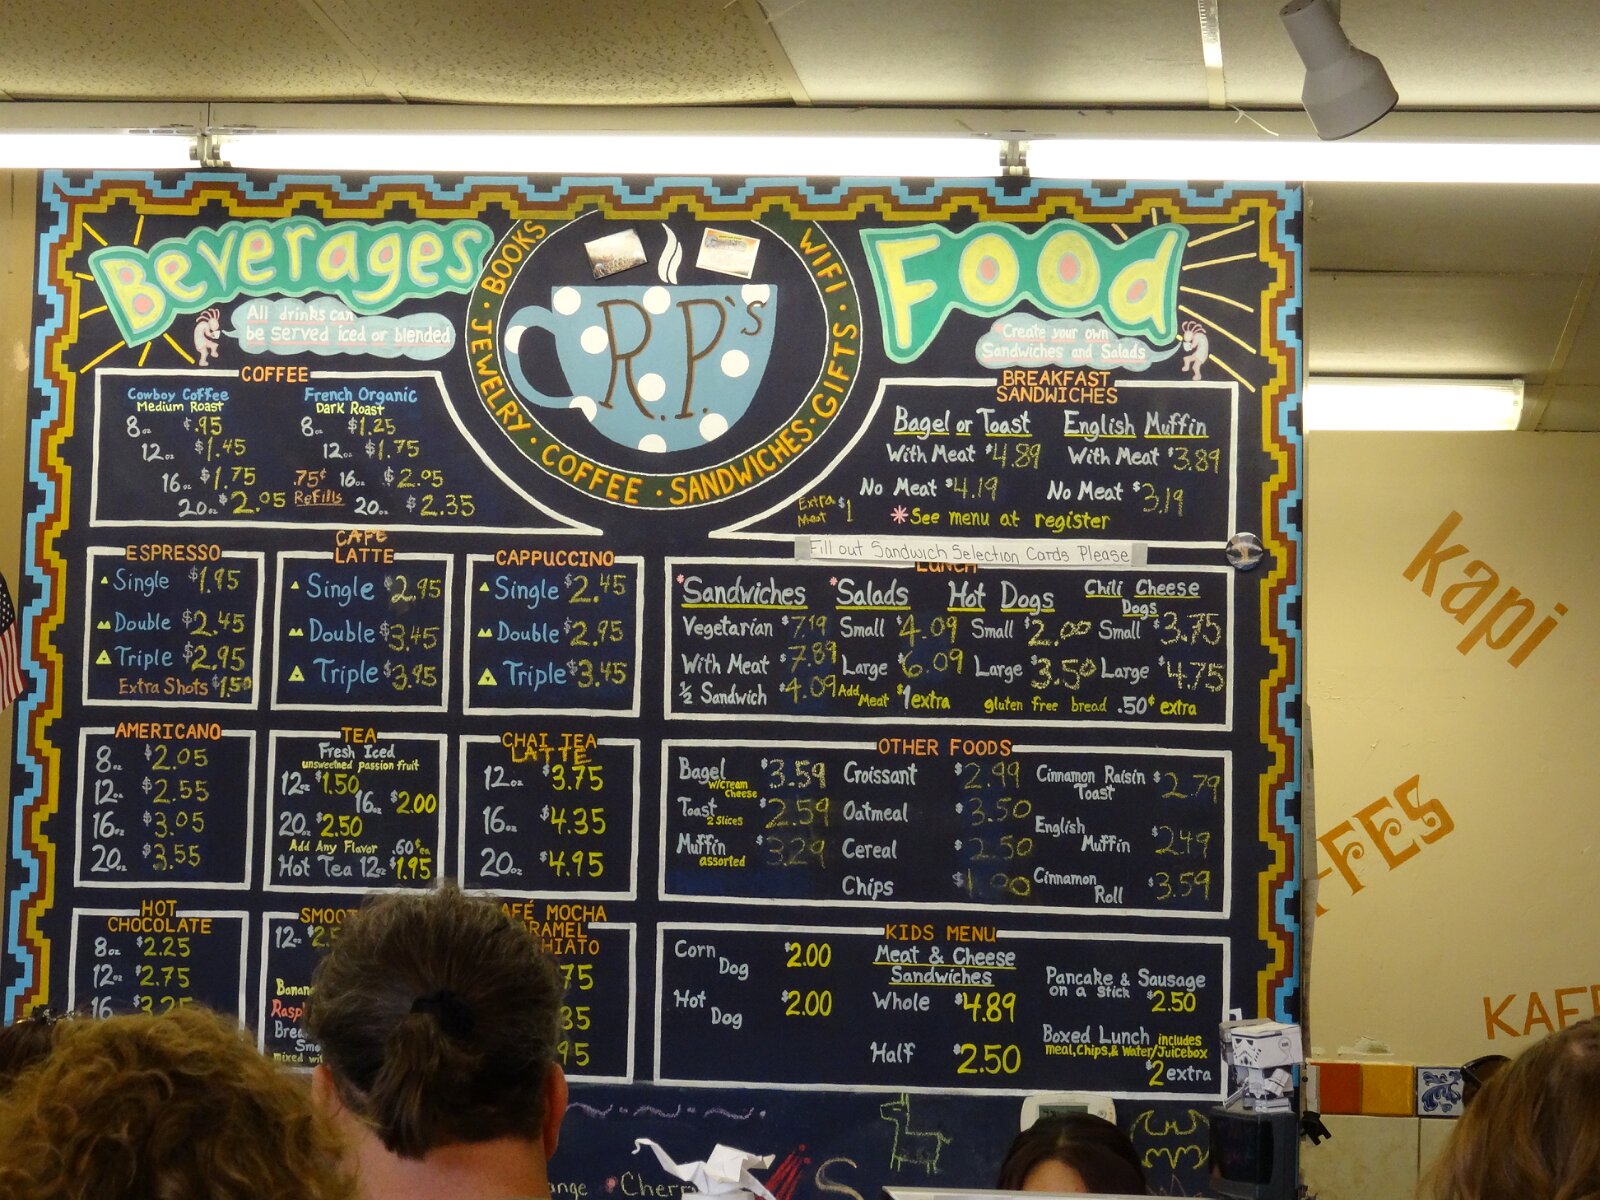 Beverages
All drinks can
be served iced or blended
BOOKS
JEWELRY · COFFEE · SANDWICHES · GIFTS · WIFI
R.P.'s
Food
Create your own
Sandwiches and Salads
COFFEE
Cowboy Coffee
Medium Roast
8oz $.95
12oz $1.45
16oz $1.75
20oz $2.05
.75¢
Refills
French Organic
Dark Roast
8oz $1.25
12oz $1.75
16oz $2.05
20oz $2.35
BREAKFAST
SANDWICHES
Bagel or Toast
With Meat $4.89
No Meat $4.19
English Muffin
With Meat $3.89
No Meat $3.19
Extra
Meat $1
*See menu at register
Fill out Sandwich Selection Cards Please
ESPRESSO
Single $1.95
Double $2.45
Triple $2.95
Extra Shots $1.50
CAFE
LATTE
Single $2.95
Double $3.45
Triple $3.95
CAPPUCCINO
Single $2.45
Double $2.95
Triple $3.45
LUNCH
*Sandwiches
Vegetarian $7.19
With Meat $7.89
½ Sandwich $4.09
*Salads
Small $4.09
Large $6.09
Add Meat $1 extra
Hot Dogs
Small $2.00
Large $3.50
Chili Cheese
Dogs
Small $3.75
Large $4.75
gluten free bread .50¢ extra
AMERICANO
8oz $2.05
12oz $2.55
16oz $3.05
20oz $3.55
TEA
Fresh Iced
unsweetned passion fruit
12oz $1.50
16oz $2.00
20oz $2.50
Add Any Flavor .60¢ ea
Hot Tea 12oz $1.95
CHAI TEA
LATTE
12oz $3.75
16oz $4.35
20oz $4.95
OTHER FOODS
Bagel $3.59
w/cream
cheese
Toast $2.59
2 slices
Muffin $3.29
assorted
Croissant $2.99
Oatmeal $3.50
Cereal $2.50
Chips $1.00
Cinnamon Raisin
Toast $2.79
English
Muffin $2.49
Cinnamon
Roll $3.59
HOT
CHOCOLATE
8oz $2.25
12oz $2.75
16 3.25
SMOOT
12oz
Banan
Rasp
Brea
Smo
mixed wi
AFÉ MOCHA
ARAMEL
HIATO
75
35
95
KIDS MENU
Corn
Dog $2.00
Hot
Dog $2.00
Meat & Cheese
Sandwiches
Whole $4.89
Half $2.50
Pancake & Sausage
on a stick $2.50
Boxed Lunch includes
meal, Chips, & Water/Juicebox
$2 extra
ange Cherr
kapi
FFES
KAF